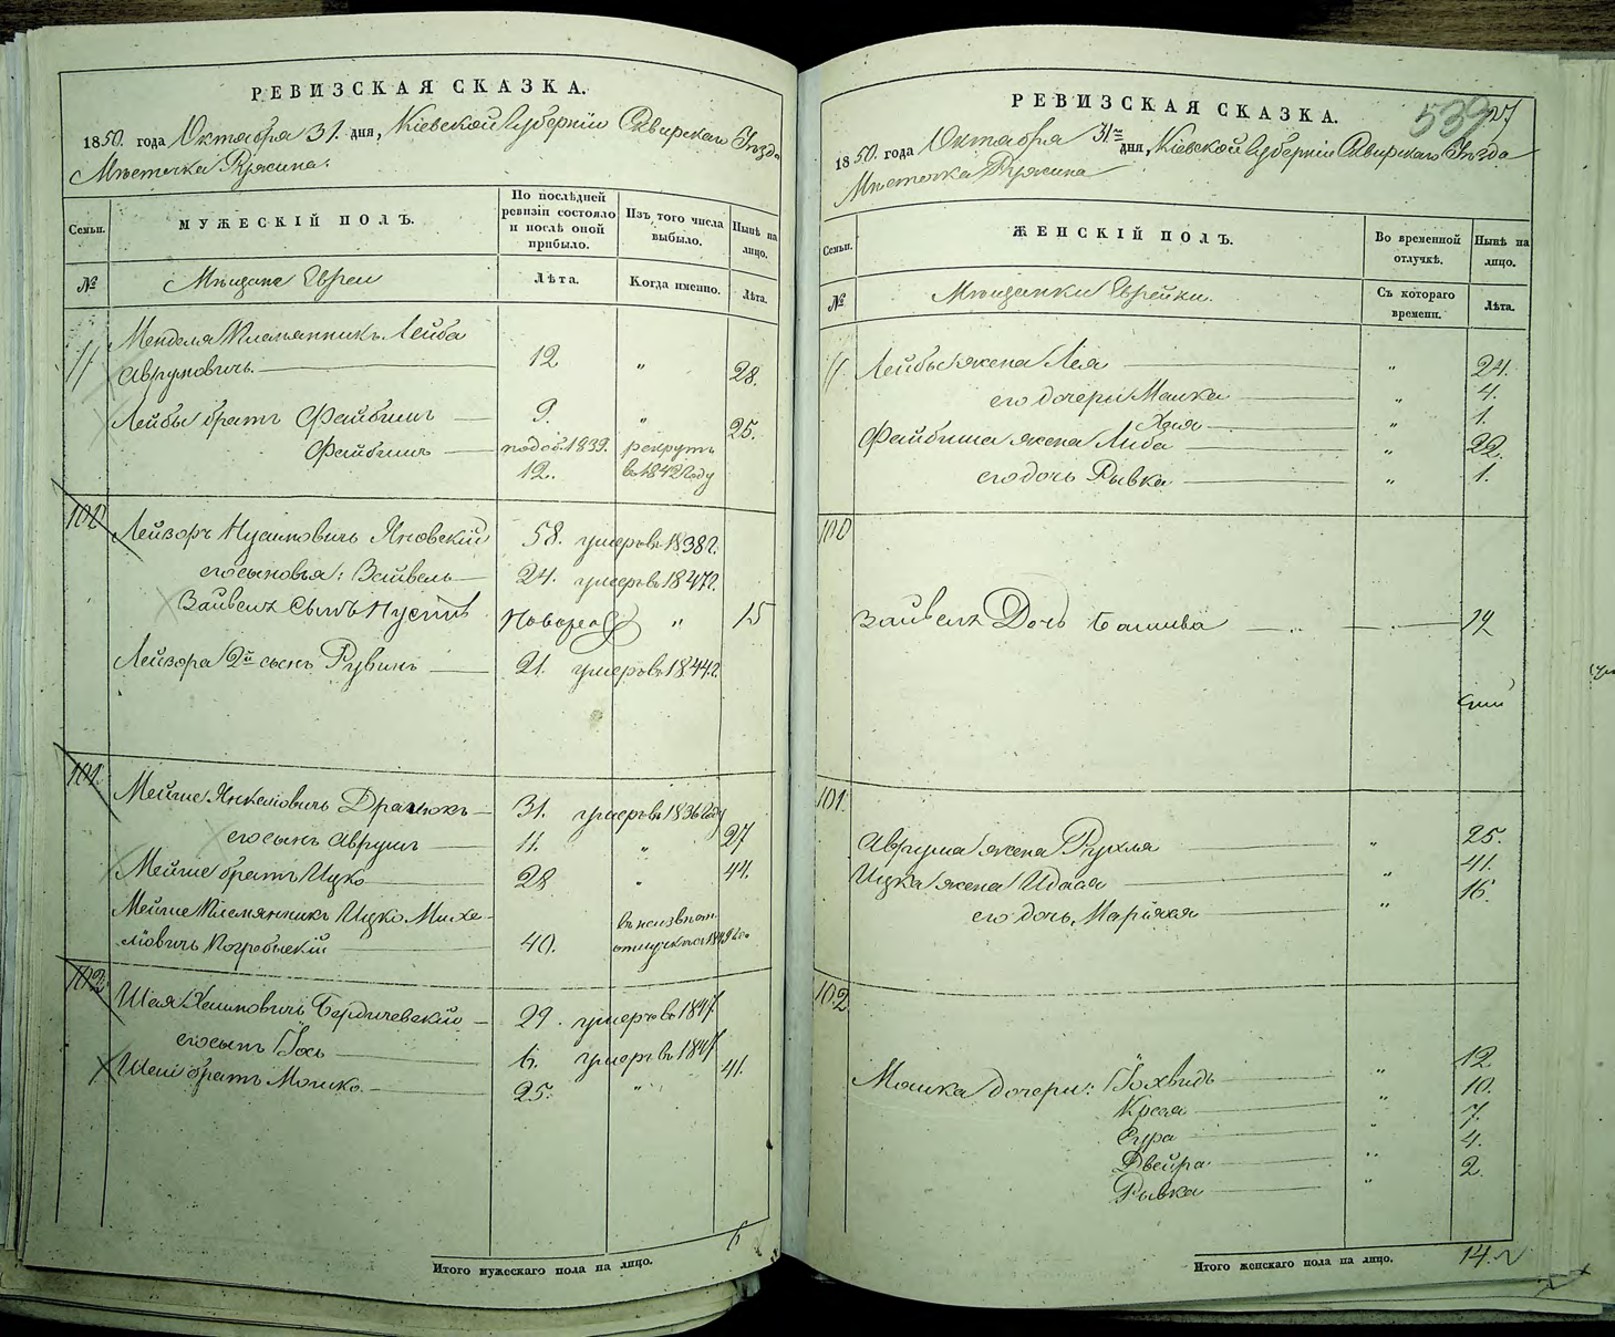 РЕВИЗСКАЯ СКАЗКА.
1850. года Октября 31. дня, Кіевской Губерніи Сквирскаго Уѣзда
Мѣстечка Ружина.
Семьи.
МУЖЕСКІЙ ПОЛЪ.
По послѣдней ревизіи состояло и послѣ оной прибыло.
Изъ того числа выбыло.
Нынѣ на лицо.
№
Мѣщане Евреи
Лѣта.
Когда именно.
Лѣта.
Менделя Племянникъ Лейба
Аврумовичъ. 12 " 28.
Лейбы братъ Файбишъ 9. " 25.
Файбишъ 12. рекрутъ
въ 1842 году
100
Лейзоръ Нусимовичъ Яновскій 58. умеръ въ 1838 г.
его сыновья: Зейвель 24. умеръ въ 1847 г.
Зайвеля Сынъ Нусинъ Новорож " 15
Лейзора 2й сынъ Рувинъ 21. умеръ въ 1844 г.
101.
Мейше Янкелювичъ Драчюкъ 31. умеръ въ 1836 году
его сынъ Аврумъ 11. " 27
Мейше братъ Ицко 28 " 44.
Мейше Племянникъ Ицко Михе-
лювичъ Погребыскій 40. въ неизвѣст.
отлучкѣ съ 1849 го
102
Шая Хаимовичъ Бердичевскій 29. умеръ въ 1847
его сынъ Іось 6. умеръ въ 1847
Шаи братъ Мошко 25. " 41.
Итого мужескаго пола на лицо. 6
РЕВИЗСКАЯ СКАЗКА.
539 27
1850. года Октября 31го дня, Кіевской Губерніи Сквирскаго Уѣзда
Мѣстечка Ружина
Семьи.
ЖЕНСКІЙ ПОЛЪ.
Во временной отлучкѣ.
Нынѣ на лицо.
№
Мѣщанки Еврейки.
Съ котораго времени.
Лѣта.
Лейбы жена Лея " 24.
его дочери Малка " 4.
Хая " 1.
Файбиша жена Либа " 22.
его дочь Рывка " 1.
100
Зайвеля Дочь Башива 12
101.
Аврума жена Рухля " 25.
Ицка жена Идаса " 41.
его дочь Маріяся " 16.
102
Мошка дочери: Іохвидь " 12
Крейя " 10.
Сура " 7.
Двейра " 4.
Рывка " 2.
Итого женскаго пола на лицо. 14.